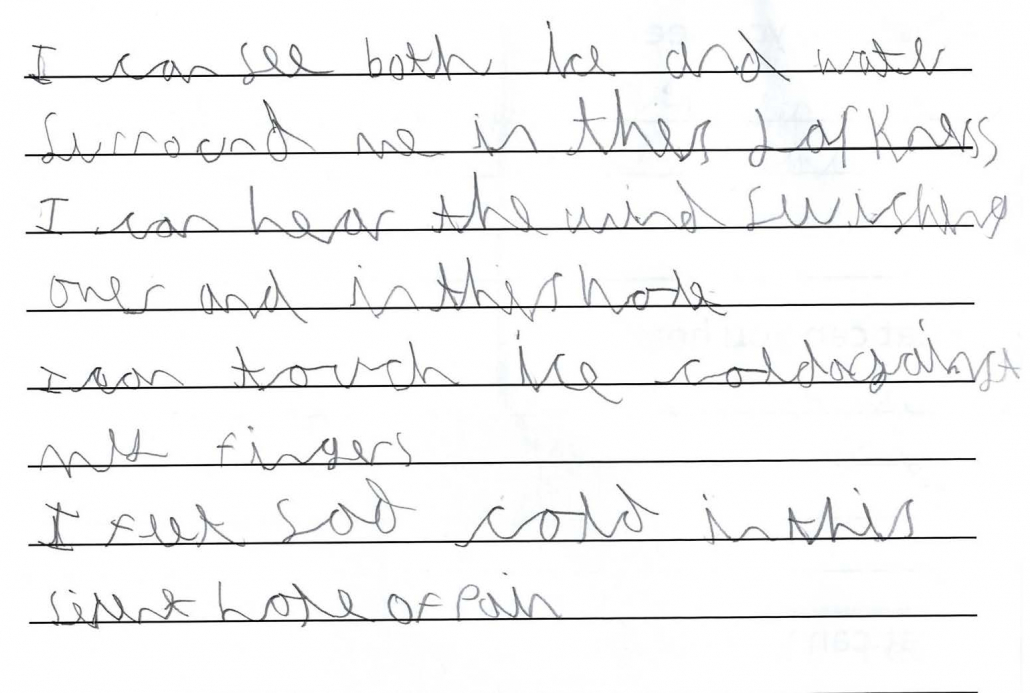 I can see both ice and water
surround me in thes darkness
I can hear the wind swishing
over and in this hole
I can touch ice cold against
my fingers
I feel sad cold in this
silent hole of pain